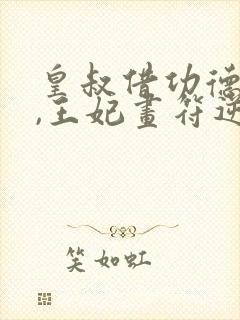 皇叔借功德
,王妃画符逆
笑如虹